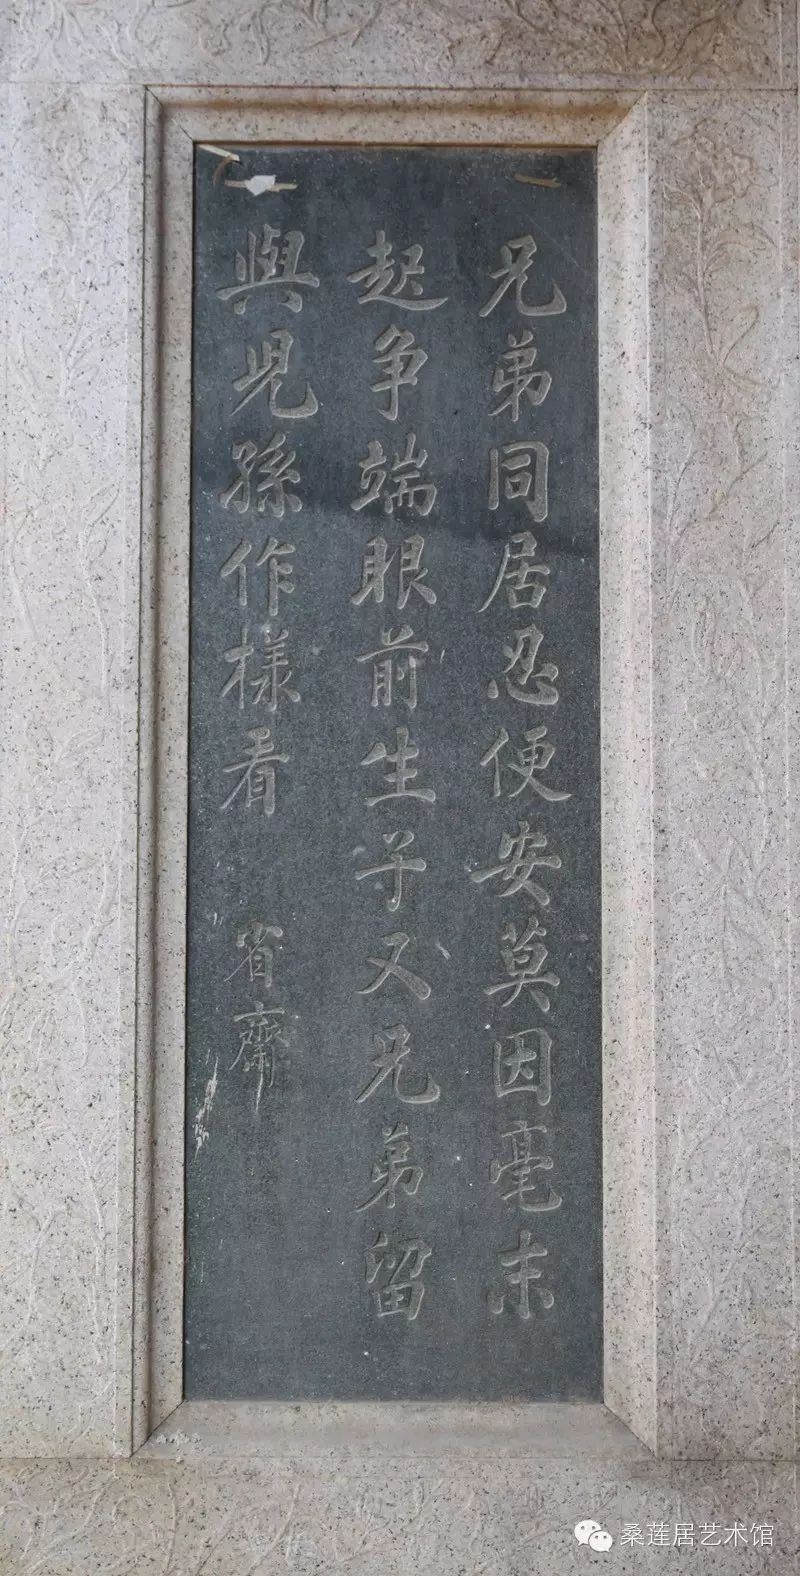 兄弟同居忍便安莫因毫末
起争端眼前生子又兄弟留
與児孫作樣看
省齋
桑莲居艺术馆